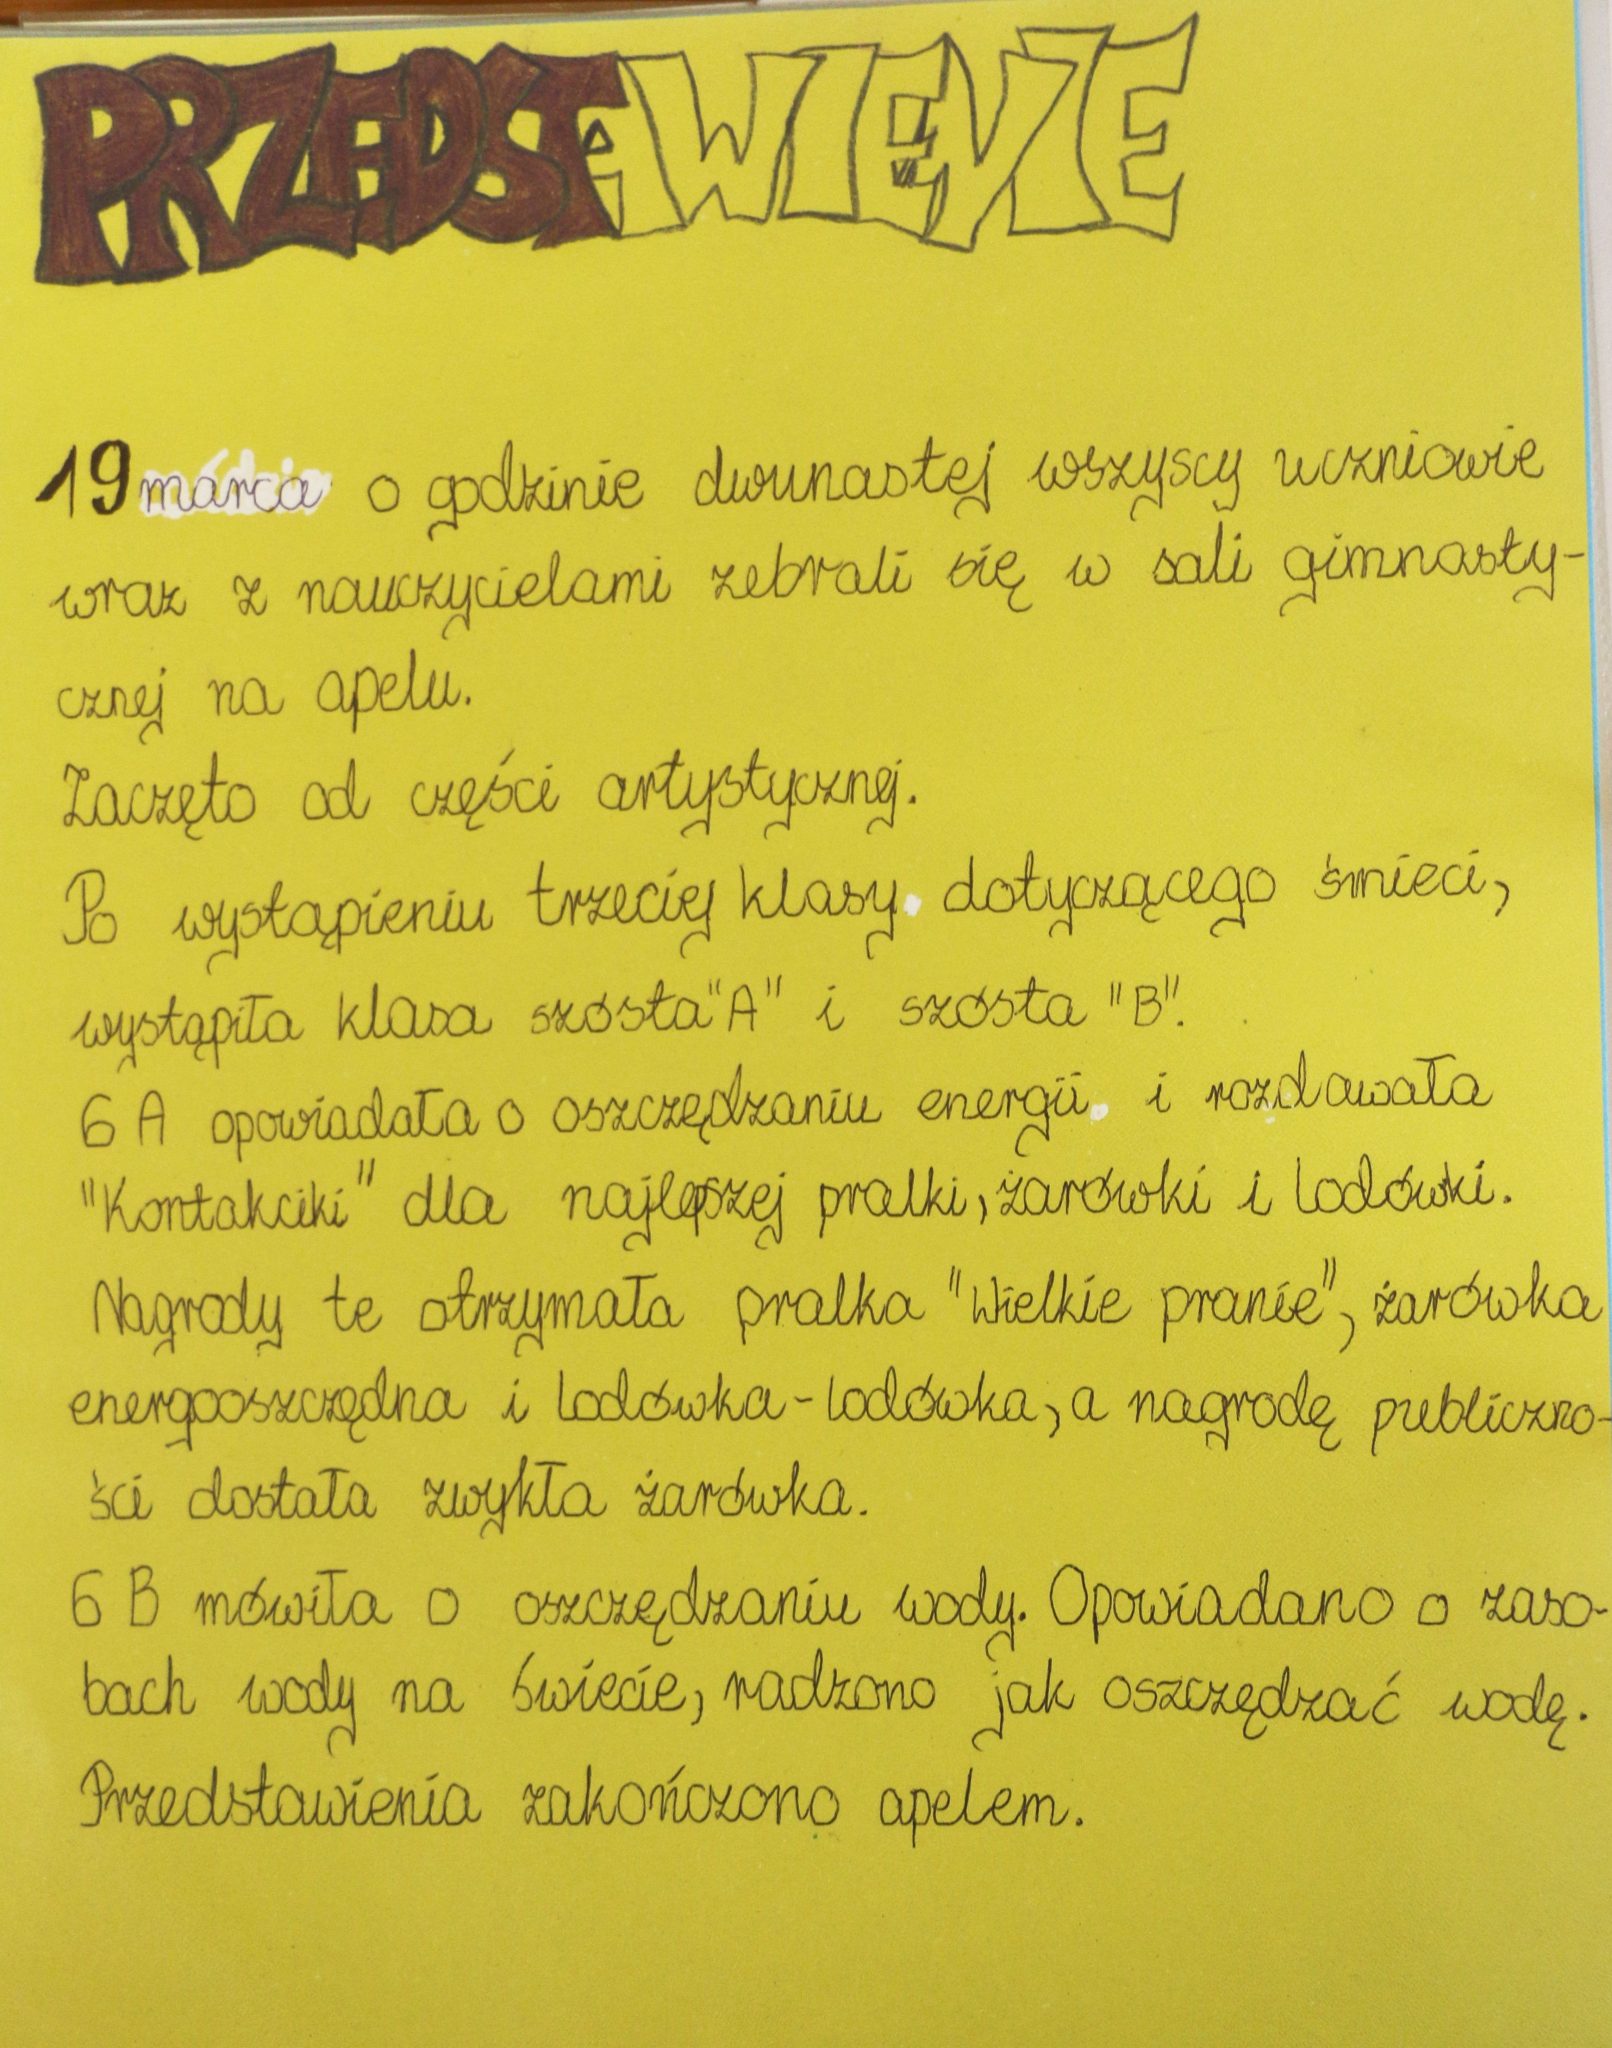 PRZEDSTAWIENIE
19 marca o godzinie dwunastej wszyscy uczniowie
wraz z nauczycielami zebrali się w sali gimnasty-
cznej na apelu.
Zaczęto od części artystycznej.
Po wystąpieniu trzeciej klasy dotyczącego śmieci,
wystąpiła klasa szósta "A" i szósta "B".
6 A opowiadała o oszczędzaniu energii i rozdawała
"Kontakciki" dla najlepszej pralki, żarówki i lodówki.
Nagrody te otrzymała pralka "Wielkie pranie", żarówka
energooszczędna i lodówka-lodówka, a nagrodę publiczno-
ści dostała zwykła żarówka.
6 B mówiła o oszczędzaniu wody. Opowiadano o zaso-
bach wody na świecie, radzono jak oszczędzać wodę.
Przedstawienia zakończono apelem.